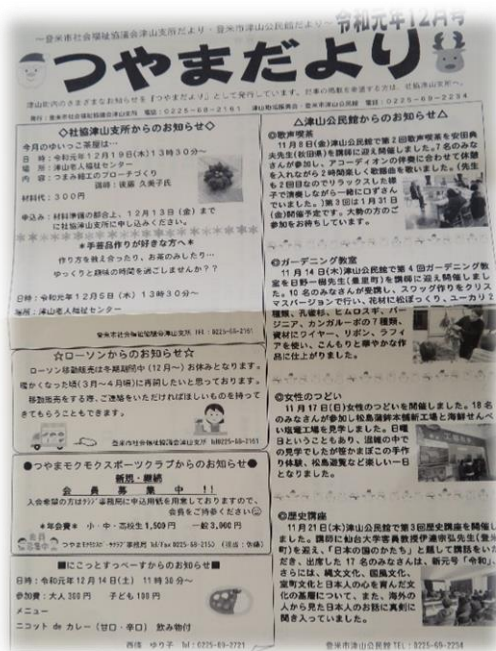 ～登米市社会福祉協議会津山支所だより・登米市津山公民館だより～
令和元年12月号
つやまだより
発行：登米市社会福祉協議会津山支所 電話：0225-69-2161
登米市津山公民館 電話：0225-69-2234
◇社協津山支所からのお知らせ◇
今月のゆいっこ茶屋は…
日 時：令和元年12月19日(木)13時30分～
場 所：津山老人福祉センター
内 容：つまみ細工のブローチづくり
講師：後藤 久美子氏
材料代：300円
申込み：材料準備の都合上、12月13日(金)まで
に社協津山支所に申し込みください。
＊手芸品作りが好きな方へ＊
作り方を教え合ったり、お茶のみしたり…
ゆっくりと趣味の時間を過ごしませんか？？
日時：令和元年12月5日(木) 13時30分～
場所：津山老人福祉センター
登米市社会福祉協議会津山支所 TEL：0225-69-2161
☆ローソンからのお知らせ☆
ローソン移動販売は冬期期間中(12月～)お休みとなります。
暖かくなった頃(3月～4月頃)に再開したいと思っております。
移動販売をする際、ご連絡をいただければほしいものを持って
きてもらうこともできます。
登米市社会福祉協議会津山支所 Tel0225-69-2161
●つやまモクモクスポーツクラブからのお知らせ●
新規・継続
会員募集中!!
入会希望の方は
事務局に申込用紙を用意しておりますので、
会員をご持参ください
＊年会費＊ 小・中・高校生1,500円 一般3,000円
Tel/Fax 0225-69-2153
■にこっとすっぺすーからのお知らせ■
日時：令和元年12月14日(土) 11時30分～
参加費：大人300円 子ども100円
メニュー
ニコット de カレー(甘口・辛口) 飲み物付
ゆり子 Tel 0225-69-2721
△津山公民館からのお知らせ△
◎歌声喫茶
11月8日(金)津山公民館で第2回歌声喫茶を安田典
夫先生(秋田県)を講師に迎え開催しました。7名のみな
さんが参加し、アコーディオンの伴奏に合わせて休憩
を入れながら2時間楽しく歌謡曲を歌いました。(先生
も2回目なのでリラックスした様
子で演奏しながら一緒に口ずさん
でいました。)第3回は1月31日
(金)開催予定です。大勢の方のご
参加をお待ちしています。
◎ガーデニング教室
11月14日(木)津山公民館で第4回ガーデニング教
室を日野一樹先生(豊里町)を講師に迎え開催しまし
た。10名のみなさんが受講し、スワッグ作りをクリス
マスバージョンで行い、花材に松ぼっくり、ユーカリ2
種類、孔雀杉、ヒムロスギ、バー
ジニア、カンガルーポの7種類、
資材にワイヤー、リボン、ラフィ
アを使い、こんもりと華やかな作
品に仕上がりました。
◎女性のつどい
11月17日(日)女性のつどいを開催しました。18名
のみなさんが参加し松島蒲鉾本舗新工場と海鮮せんべ
い塩竈工場を見学しました。日曜
日ということもあり、混雑の中で
の見学でしたが笹かまぼこの手作
り体験、松島遊覧など楽しい一日
となりました。
◎歴史講座
11月21日(木)津山公民館で第3回歴史講座を開催し
ました。講師に仙台大学客員教授伊達宗弘先生(登米
町)を迎え、「日本の国のかたち」と題して講話をいた
だき、出席した17名のみなさんは、新元号「令和」、
さらには、縄文文化、国風文化、
室町文化と日本人の心を育んだ文
化の基層について、また、海外の
人から見た日本人のお話に真剣に
聞き入っていました。
登米市津山公民館 TEL：0225-69-2234